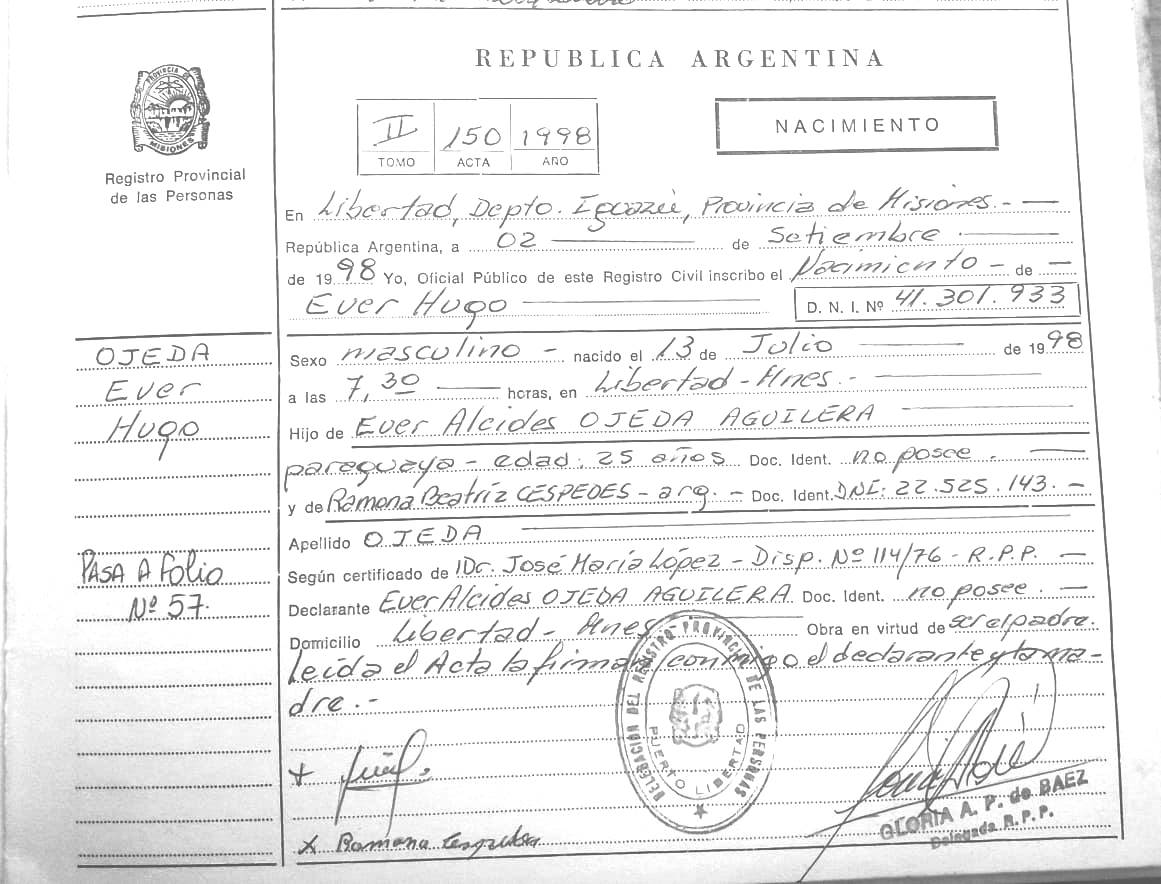 REPUBLICA ARGENTINA
PROVINCIA
MISIONES
Registro Provincial
de las Personas
II 150 1998
TOMO ACTA AÑO
NACIMIENTO
En Libertad, Depto. Iguazú, Provincia de Misiones.-
República Argentina, a 02 de Setiembre
de 1998 Yo, Oficial Público de este Registro Civil inscribo el Nacimiento - de
Ever Hugo D. N. I. Nº 41.301.933
OJEDA
Ever
Hugo
Sexo masculino - nacido el 13 de Julio de 1998
a las 7,30 horas, en Libertad - Mnes.-
Hijo de Ever Alcides OJEDA AGUILERA
paraguaya - edad: 25 años Doc. Ident. no posee.
y de Ramona Beatríz CESPEDES - arg. - Doc. Ident. DNI: 22.525.143.-
Apellido OJEDA
PASA A folio
Nº 57.
Según certificado de Dr. José María López - Disp. Nº 114/76 - R.P.P.
Declarante Ever Alcides OJEDA AGUILERA Doc. Ident. no posee.
Domicilio Libertad - Mnes Obra en virtud de ser el padre.
leída el Acta la firman conmigo el declarante y la ma-
dre.-
DELEGACIÓN DEL REGISTRO PROVINCIAL DE LAS PERSONAS
PUERTO LIBERTAD
GLORIA A. P. de BAEZ
Delegada R. P. P.
x Ramona